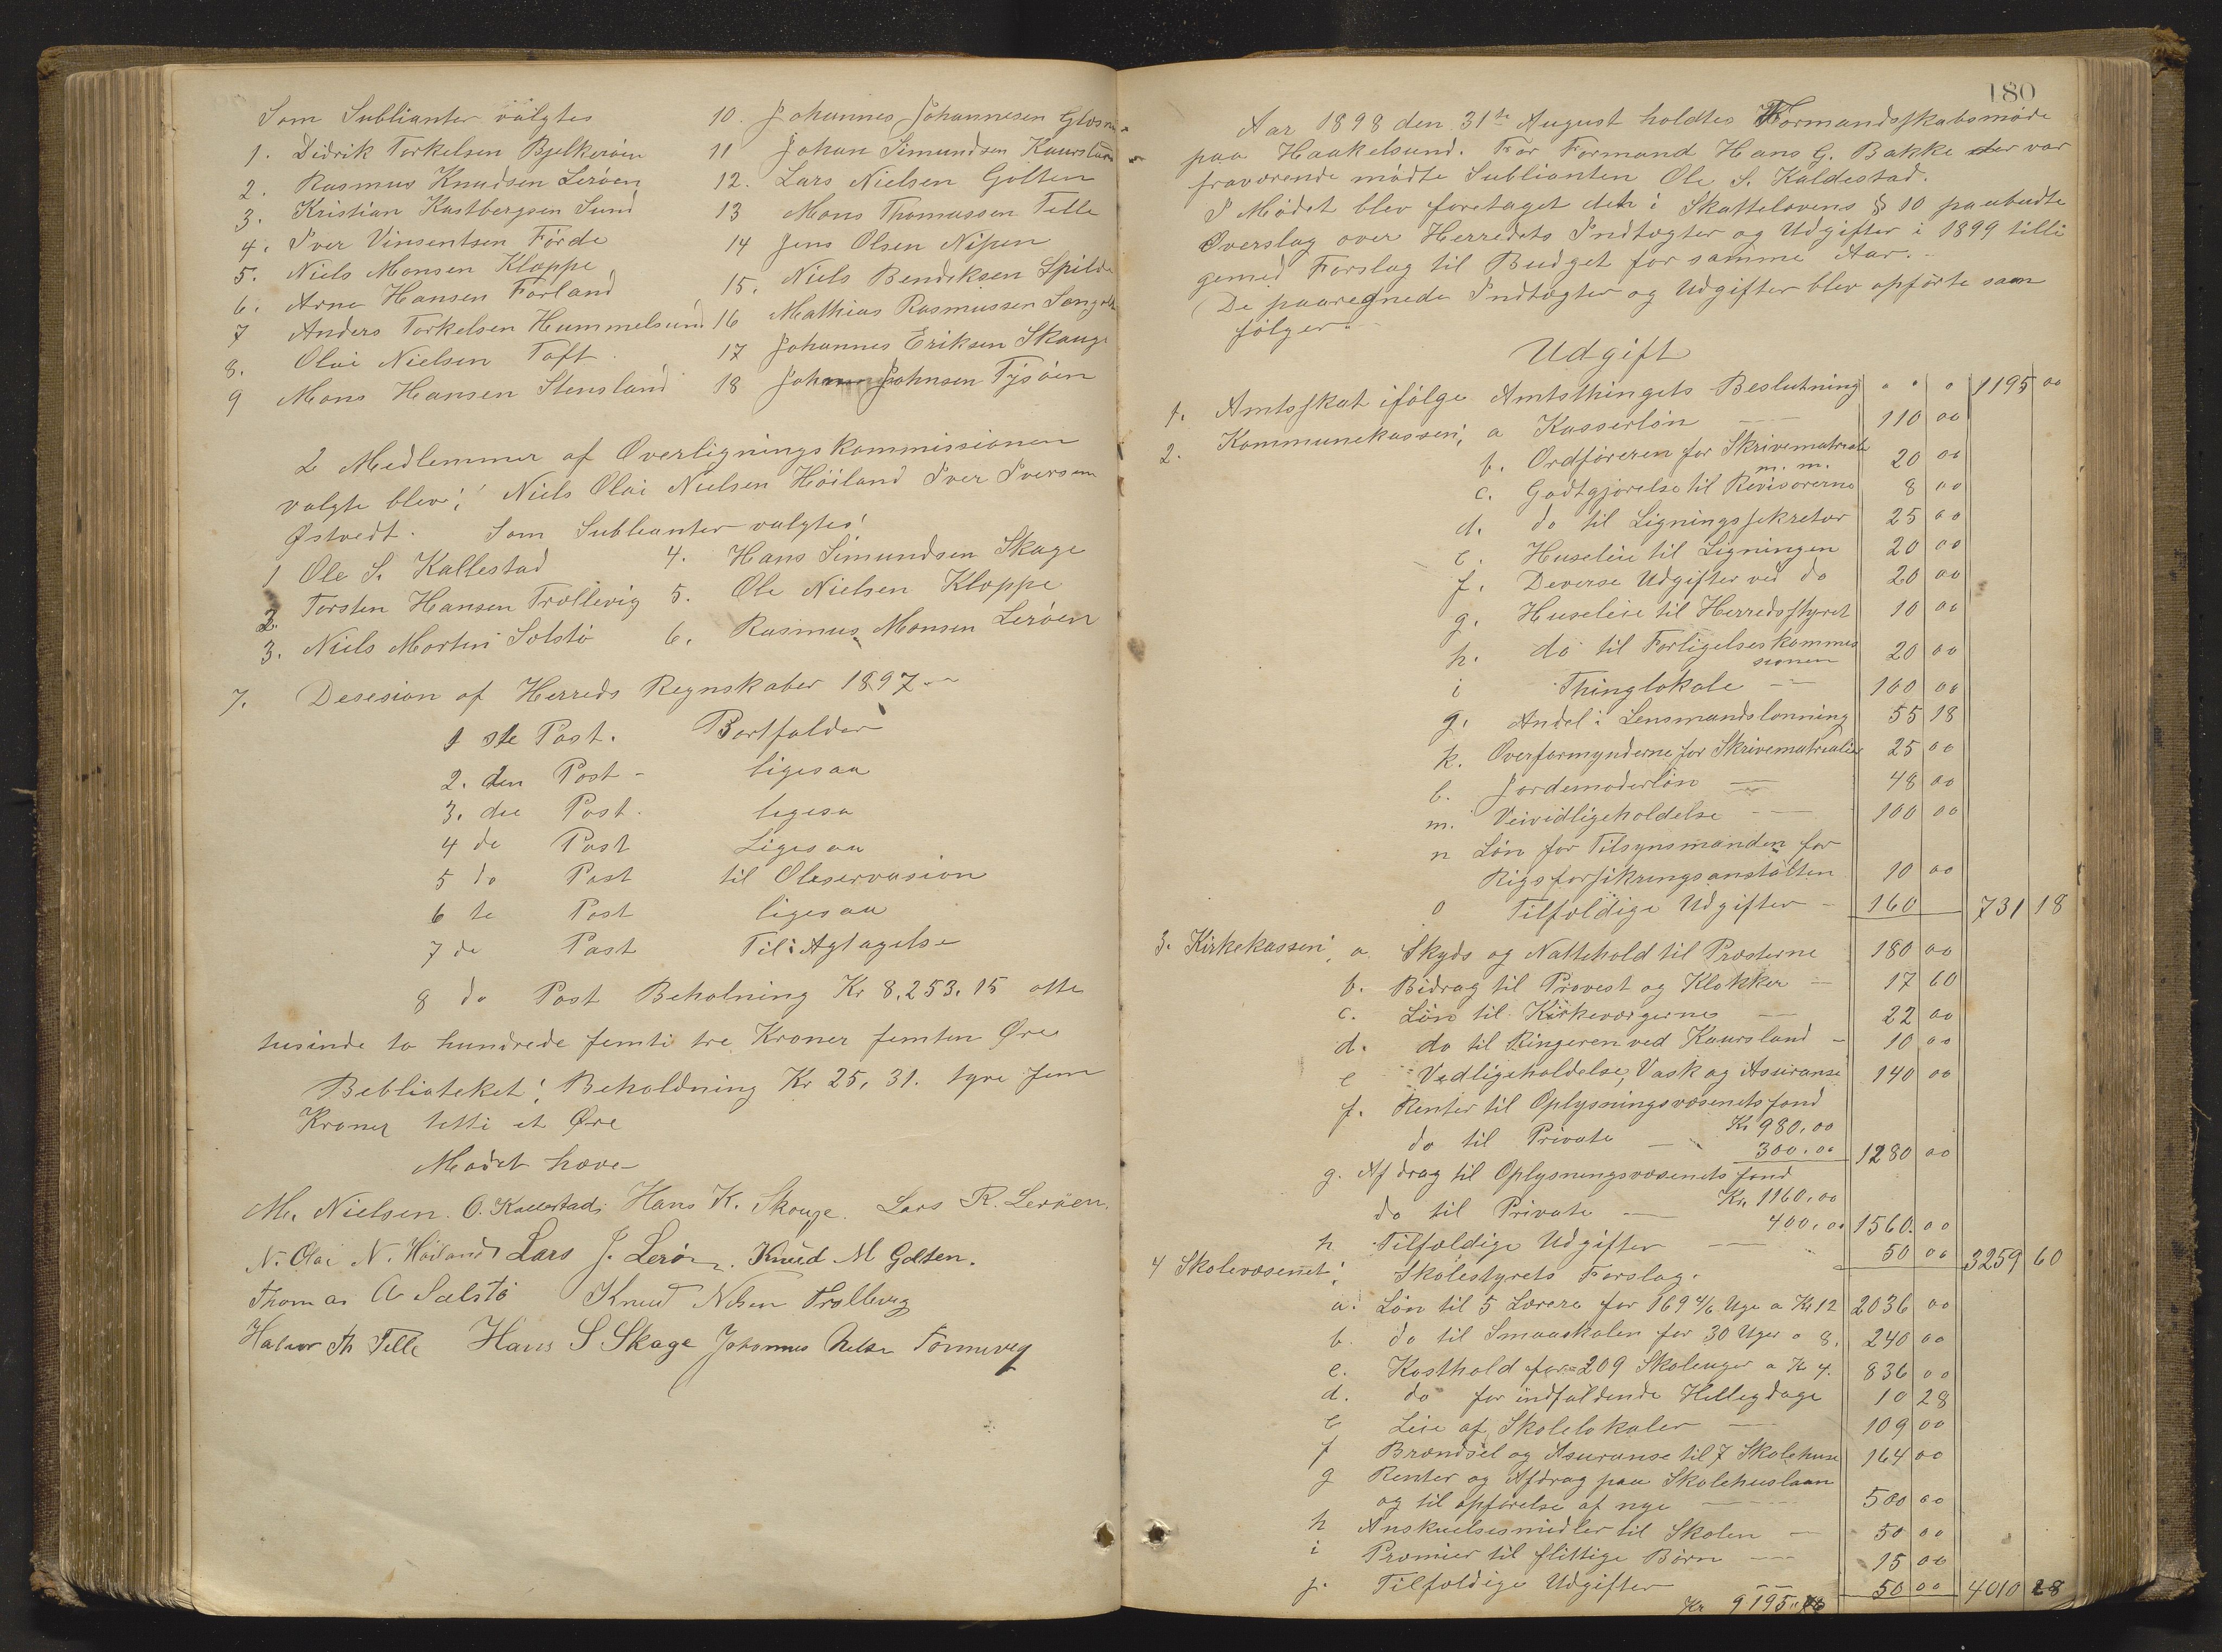 Som Sublianter valgtes
1. Didrik Torkelsen Bjelkeröen
2. Rasmus Knudsen Leröen
3. Kristian Kastbergsen Sund
4. Iver Vinsentsen Förde
5. Niels Monsen Kloppe
6. Arne Hansen Forland
7 Anders Torkelsen Hummelsund
8. Olai Nielsen Toft
9 Mons Hansen Stensland
10. Johannes Johannesen
11 Johan Simundsen
12. Lars Nielsen Golten
13 Mons Thomassen Telle
14 Jens Olsen Nipen
15. Niels Bendiksen Spilde
16 Mathias Rasmussen
17 Johannes Eriksen Skauge
18 Johnsen Tysöen
2 Medlemmer af Overligningskommissionen
valgte blev: Niels Olai Nielsen Höiland Iver Iversen
Østvedt. Som Subleanter valgtes:
1 Ole S. Kallestad
2. Torsten Hansen Trollevig
3. Niels Martin Solstö
4. Hans Simundsen Skage
5. Ole Nielsen Kloppe
6. Rasmus Monsen Leröen
7. Desesion af Herreds Regnskaber 1897 —
1 ste Post. Bortfalder
2. den Post - ligesaa
3. die Post. ligesa
4 de Post Ligesaa
5 te Post til Observasion
6 te Post ligesaa
7 de Post Til Agtagelse
8 de Post Beholning Kr 8,253.15 otte
tusinde to hundrede femti tre Kroner femten Øre
Bebliateket: Beholdning Kr 25,31. tyve fem
Kroner tretti et Øre
Mödet hæve-
M. Nielsen. O. Kallestad. Hans K. Skauge. Lars R. Leröen.
N. Olai N. Höiland Lars J. Lerön. Knud M Golten.
Thomas A Solstö Knud Nilsen Trollevig
Halvor Th Telle Hans S Skage Johannes Nilsen Tönneveg
180
Aar 1898 den 31te August holdtes Formandsskabsmöde
paa Haakelsund. For Formand Hans G. Bakke der var
fraværende mödte Sublianten Ole S. Kaldestad.
I Mödet blev foretaget det i Skattelovens § 10 paabudte
Overslag over Herredets Indtægter og Udgifter i 1899 tilli
gemed Forslag til Budget for samme Aar. -
De paaregnede Indtægter og Udgifter blev opförte som
fölger. -
Udgift
1. Amtsskat ifölge Amtsthingets Beslutning " " " 1195 00
2. Kommunekassen; a Kasserlön — 110 00
b. Ordföreren for Skrivematriale m. m. 20 00
c. Godtgjörelse til Revisorerne 8 00
d. do til Ligningssekretær 25 00
e. Huseleie til Ligningen 20 00
f. Deverse Udgifter ved do 20 00
g. Huseleie til Herredsstyret 10 00
h. do til Forligelseskommissionen 20 00
i Thinglokale — 100 00
g. Andel i Lensmandslønning 55 18
k. Overformynderne for Skrivematrialier 25 00
l. Jordemoderlön — 48 00
m. Veividligeholdelse — 100 00
n Lön for Tilsynsmanden for
Rigsforsikringsanstalten 10 00
o Tilfældige Udgifter - 160 731 18
3. Kirkekassen; a. Skyds og Nattehold til Præsterne 180 00
b. Bidrag til Provest og Klokker - 17 60
c. Lön til Kirkeværgerne — 22 00
d. do til Ringeren ved Kaursland - 10 00
e Vedligeholdelse, Vask og Assuranse 140 00
f. Renter til Oplysningsvæsenets fond
Kr 980.00
do til Private — 300.00 1280 00
g. Afdrag til Oplysningsvæsenets fond
Kr. 1160.00
do til Private — 400.00 1560.00
h Tilfældige Udgifter — 50 00 3259 60
4 Skolevæsenet; Skolestyrets Forslag.
a. Lön til 5 Lærere for 169 4/6 Uge a Kr 12 2036 00
b. do til Smaaskolen for 30 Uger a 8. 240 00
c. Kosthold for 209 Skoleuger a Kr 4. 836 00
d. do for indfaldende Helligdage 10 28
e Leie af Skolelokaler — 109 00
f Brændsel og Asuranse til 7 Skolehuse 164 00
g Renter og Afdrag paa Skolehuslaan
og til opförelse af nye — 500 00
h Anskuelsesmidler til Skolen - 50 00
i Præmier til flittige Börn — 15 00
j. Tilfældige Udgifter — 50 00 4010 28
Kr 9195"